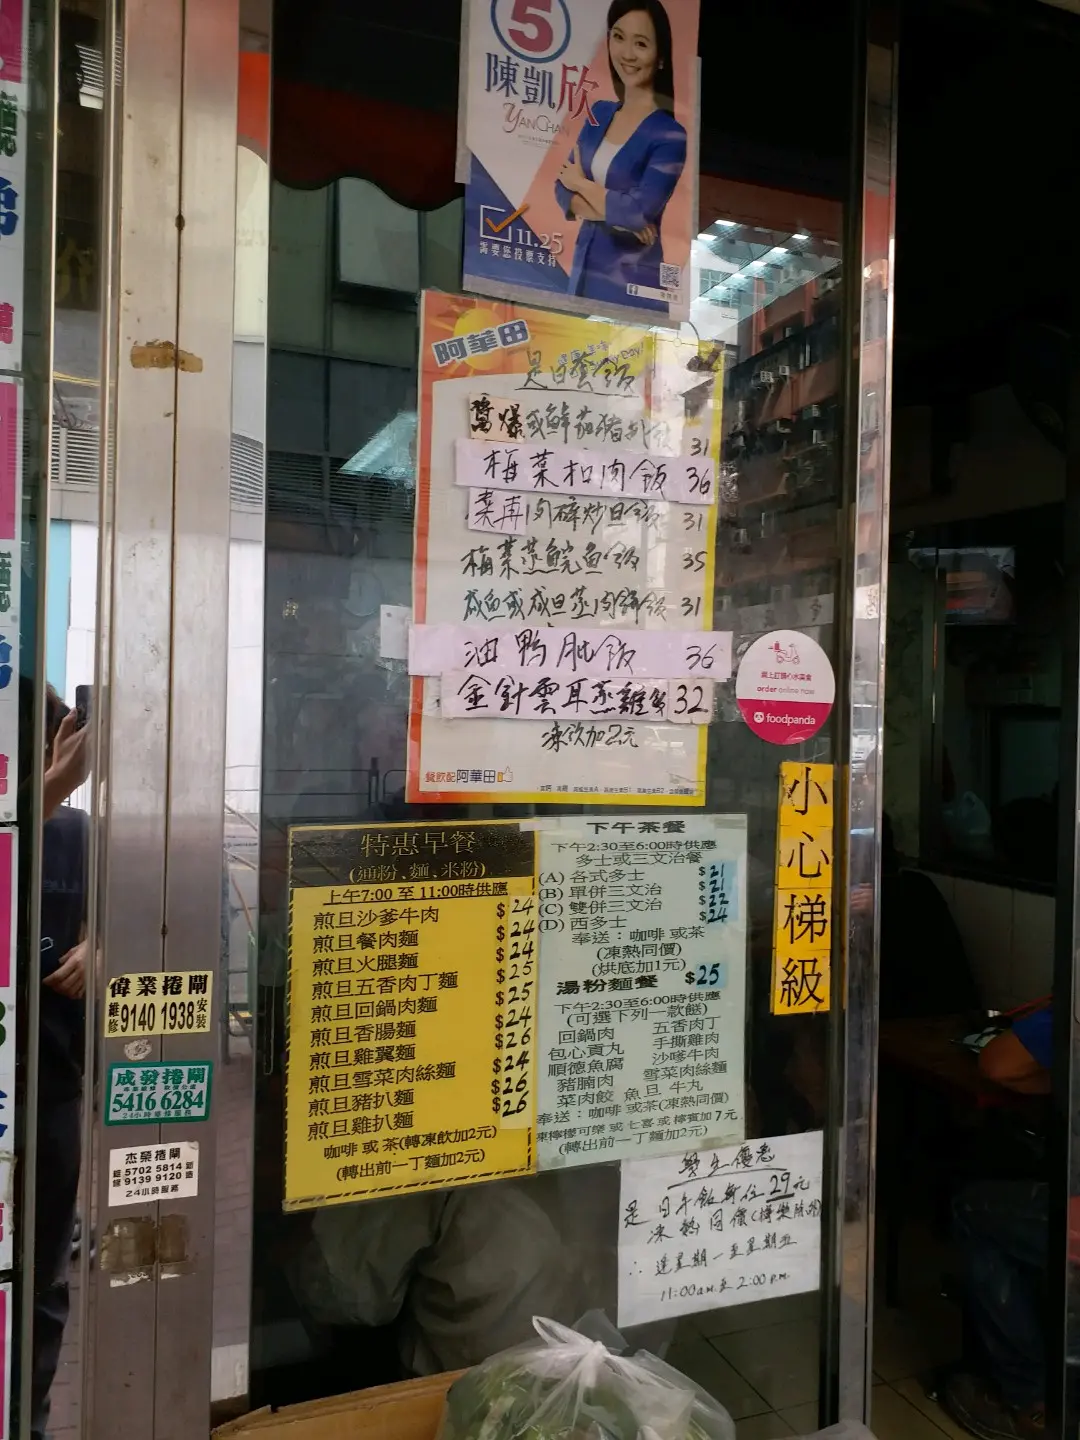 5
陳凱欣
YAN CHAN
11.25
需要您投票支持
阿華田
是日套餐飯
鮮茄豬扒飯 31
梅菜扣肉飯 36
菜甫肉碎炒旦飯 31
梅菜蒸鯇魚飯 35
咸魚或咸旦蒸肉餅飯 31
油鴨肶飯 36
金針雲耳蒸雞飯 32
凍飲加2元
餐飲配阿華田
網上訂購心水美食
order online now
foodpanda
小心梯級
特惠早餐
(通粉、麵、米粉)
上午7:00 至 11:00時供應
煎旦沙爹牛肉 $24
煎旦餐肉麵 $24
煎旦火腿麵 $24
煎旦五香肉丁麵 $25
煎旦回鍋肉麵 $25
煎旦香腸麵 $24
煎旦雞翼麵 $26
煎旦雪菜肉絲麵 $24
煎旦豬扒麵 $26
煎旦雞扒麵 $26
咖啡 或 茶(轉凍飲加2元)
(轉出前一丁麵加2元)
下午茶餐
下午2:30至6:00時供應
多士或三文治餐
(A) 各式多士 $21
(B) 單併三文治 $21
(C) 雙併三文治 $22
(D) 西多士 $24
奉送：咖啡 或茶
(凍熱同價)
(烘底加1元)
湯粉麵餐 $25
下午2:30至6:00時供應
(可選下列一款餸)
回鍋肉 五香肉丁
包心貢丸 手撕雞肉
順德魚腐 沙嗲牛肉
豬腩肉 雪菜肉絲麵
菜肉餃 魚旦 牛丸
奉送：咖啡 或茶(凍熱同價)
凍檸檬可樂 或 七喜 或 檸賓加 7 元
(轉出前一丁麵加2元)
學生優惠
是日午飯 29元
凍熱同價
逢星期一至星期五
11:00am.至 2:00 P.m.
偉業捲閘
維修 9140 1938 安裝
成發捲閘
5416 6284
24小時維修服務
杰榮捲閘
5702 5814
9139 9120
24小時服務